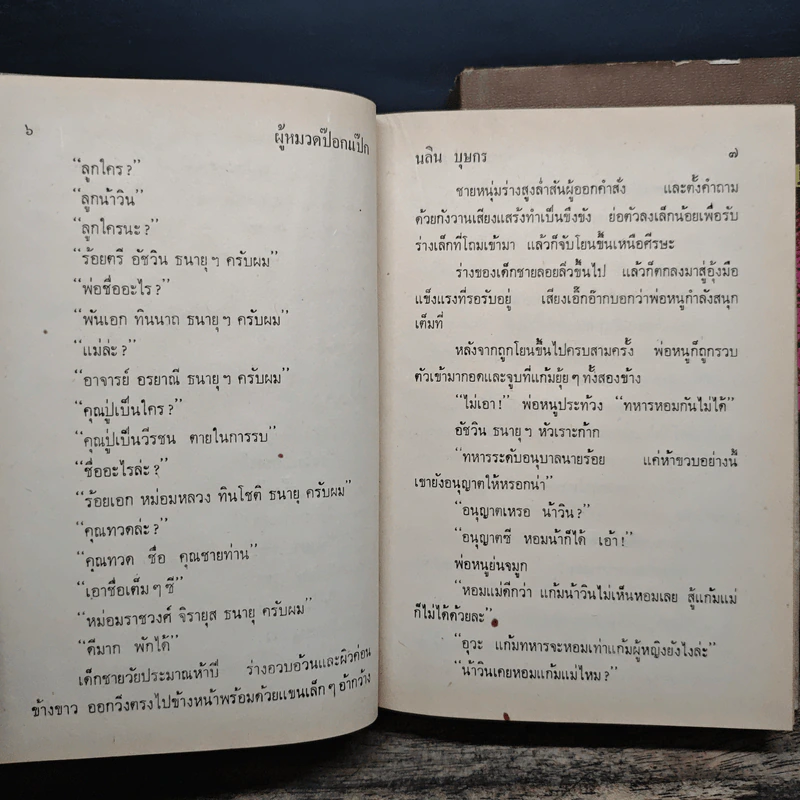 ๖
ผู้หมวดป๊อกแป๊ก
“ลูกใคร?”
“ลูกน้าวิน”
“ลูกใครนะ?”
“ร้อยตรี อัชวิน ธนายุฯ ครับผม”
“พ่อชื่ออะไร?”
“พันเอก ทินนาถ ธนายุฯ ครับผม”
“แม่ล่ะ?”
“อาจารย์ อรยาณี ธนายุฯ ครับผม”
“คุณปู่เป็นใคร?”
“คุณปู่เป็นวีรชน ตายในการรบ”
“ชื่ออะไรล่ะ?”
“ร้อยเอก หม่อมหลวง ทินโชติ ธนายุ ครับผม”
“คุณทวดล่ะ?”
“คุณทวด ชื่อ คุณชายท่าน”
“เอาชื่อเต็มๆ ซี”
“หม่อมราชวงศ์ จิรายุส ธนายุ ครับผม”
“ดีมาก พักได้”
เด็กชายวัยประมาณห้าปี ร่างอวบอ้วนและผิวค่อน
ข้างขาว ออกวิ่งตรงไปข้างหน้าพร้อมด้วยแขนเล็กๆ อ้ากว้าง
นลิน บุษกร
๗
ชายหนุ่มร่างสูงล่ำสันผู้ออกคำสั่ง และตั้งคำถาม
ด้วยกังวานเสียงแสร้งทำเป็นขึงขัง ย่อตัวลงเล็กน้อยเพื่อรับ
ร่างเล็กที่โถมเข้ามา แล้วก็จับโยนขึ้นเหนือศีรษะ
ร่างของเด็กชายลอยลิ่วขึ้นไป แล้วก็ตกลงมาสู่อุ้งมือ
แข็งแรงที่รอรับอยู่ เสียงเอิ๊กอ๊ากบอกว่าพ่อหนูกำลังสนุก
เต็มที่
หลังจากถูกโยนขึ้นไปครบสามครั้ง พ่อหนูก็ถูกรวบ
ตัวเข้ามากอดและจูบที่แก้มยุ้ยๆ ทั้งสองข้าง
“ไม่เอา!” พ่อหนูประท้วง “ทหารหอมกันไม่ได้”
อัชวิน ธนายุฯ หัวเราะก๊าก
“ทหารระดับอนุบาลนายร้อย แค่ห้าขวบอย่างนี้
เขายังอนุญาตให้หรอกน่า”
“อนุญาตเหรอ น้าวิน?”
“อนุญาตซี หอมน้าก็ได้ เอ้า!”
พ่อหนูย่นจมูก
“หอมแม่ดีกว่า แก้มน้าวินไม่เห็นหอมเลย สู้แก้มแม่
ก็ไม่ได้ด้วยละ”
“อุวะ แก้มทหารจะหอมเท่าแก้มผู้หญิงยังไงล่ะ”
“น้าวินเคยหอมแก้มแม่ไหม?”